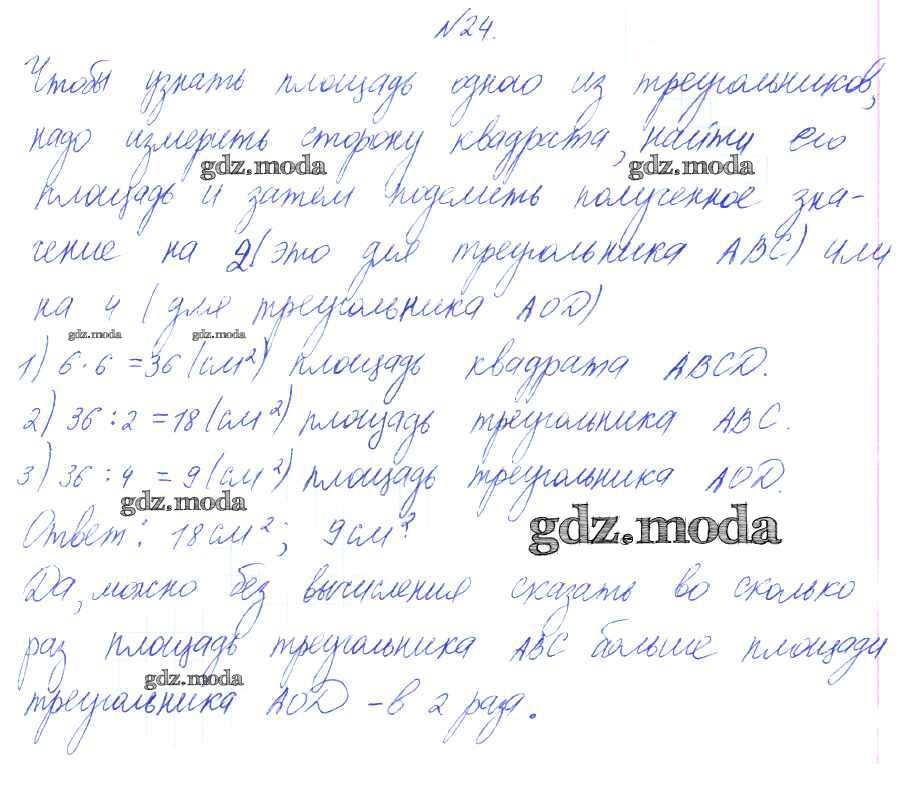 №24.
Чтобы узнать площадь одного из треугольников,
надо измерить сторону квадрата, найти его
gdz.moda gdz.moda
площадь и затем поделить полученное зна-
чение на 2 (это для треугольника ABC) или
на 4 (для треугольника AOD)
gdz.moda gdz.moda
1) 6·6 =36 (см²) площадь квадрата ABCD.
2) 36 : 2 =18 (см²) площадь треугольника ABC.
3) 36 : 4 = 9 (см²) площадь треугольника AOD.
gdz.moda
gdz.moda
Ответ: 18см²; 9см²
Да, можно без вычисления сказать во сколько
раз площадь треугольника ABC больше площади
gdz.moda
треугольника AOD – в 2 раза.